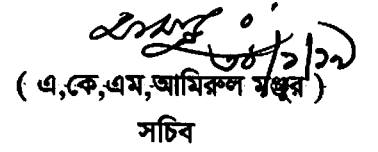 ৩০/১/১৯
( এ,কে,এম,আমিরুল মঞ্জুর )
সচিব